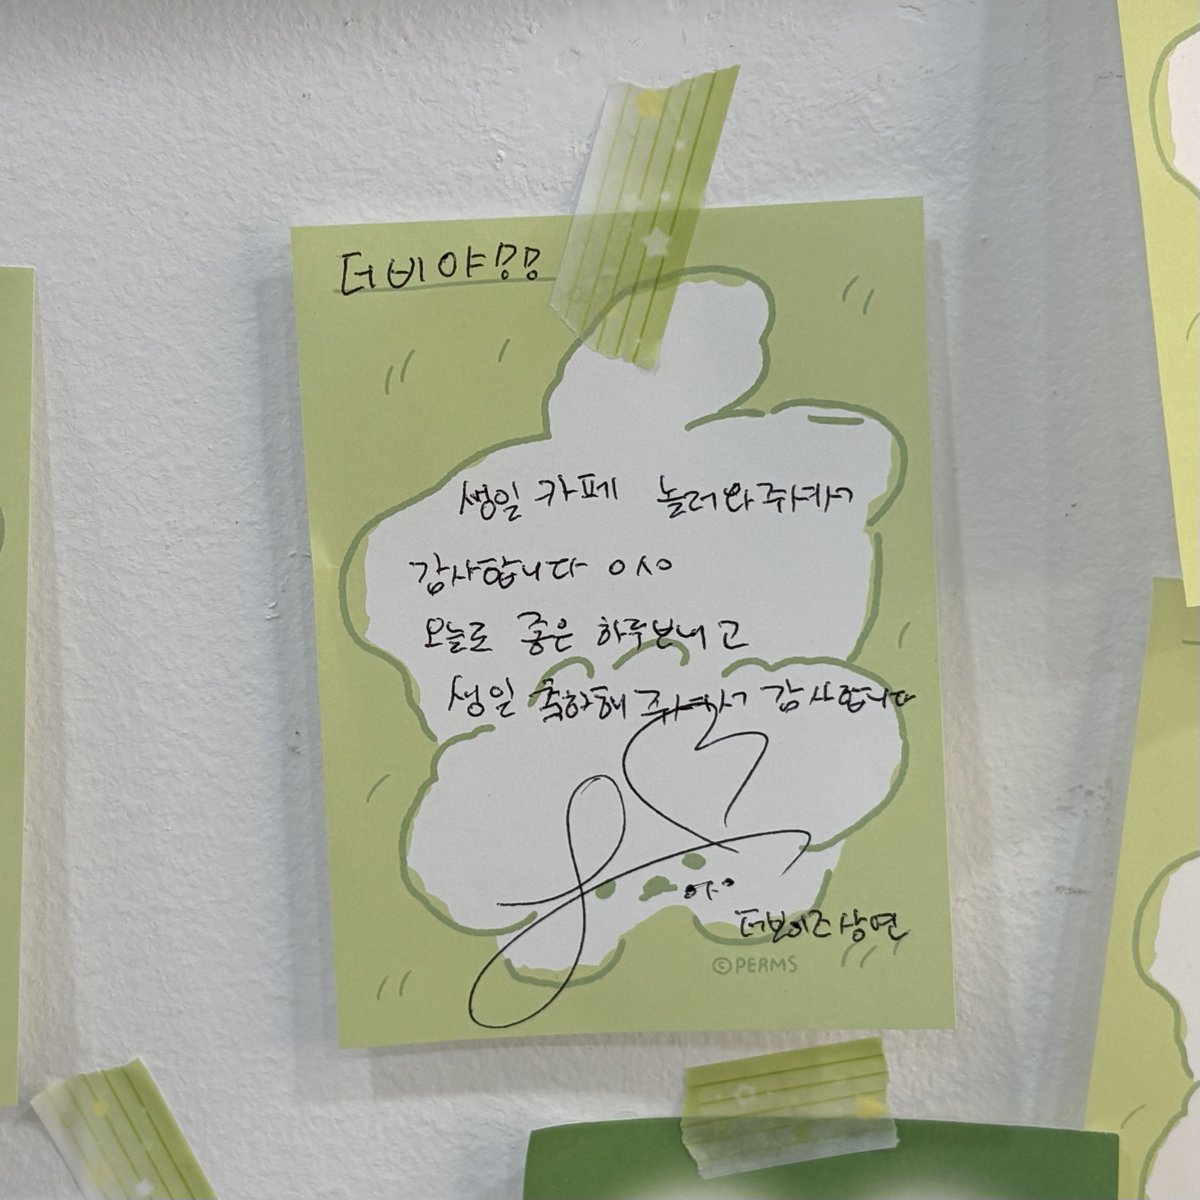 더비야
생일 카페 놀러와주셔서
감사합니다 ㅇㅅㅇ
오늘도 좋은 하루보내고
생일 축하해 주셔서 감사합니다
더보이즈 상연
©PERMS